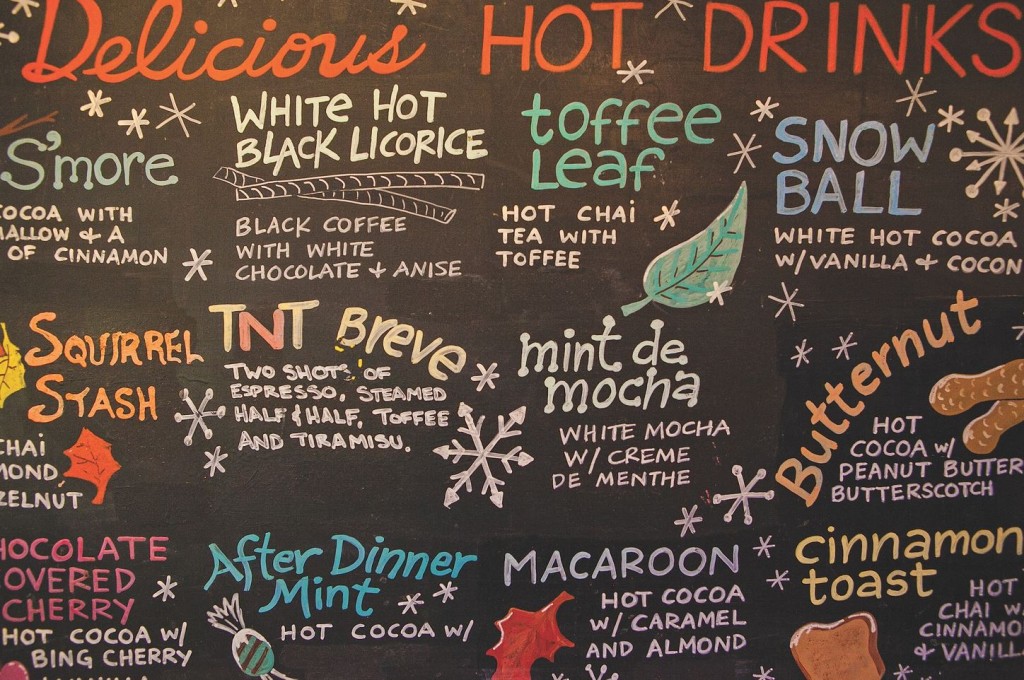 Delicious HOT DRINKS
S'more
COCOA WITH
MALLOW & A
OF CINNAMON
WHITE HOT
BLACK LICORICE
BLACK COFFEE
WITH WHITE
CHOCOLATE & ANISE
toffee
Leaf
HOT CHAI
TEA WITH
TOFFEE
SNOW
BALL
WHITE HOT COCOA
W/VANILLA & COCON
SQUIRREL
STASH
CHAI
MOND,
ZELNUT
TNT Breve
TWO SHOTS OF
ESPRESSO, STEAMED
HALF & HALF, TOFFEE
AND TIRAMISU.
mint de
mocha
WHITE MOCHA
W/ CREME
DE MENTHE
Butternut
HOT
COCOA W/
PEANUT BUTTER
BUTTERSCOTCH
HOCOLATE
OVERED
CHERRY
HOT COCOA W/
BING CHERRY
After Dinner
Mint
HOT COCOA W/
MACAROON
HOT COCOA
W/ CARAMEL
AND ALMOND
cinnamon
toast
HOT
CHAI W/
CINNAMO
& VANILL